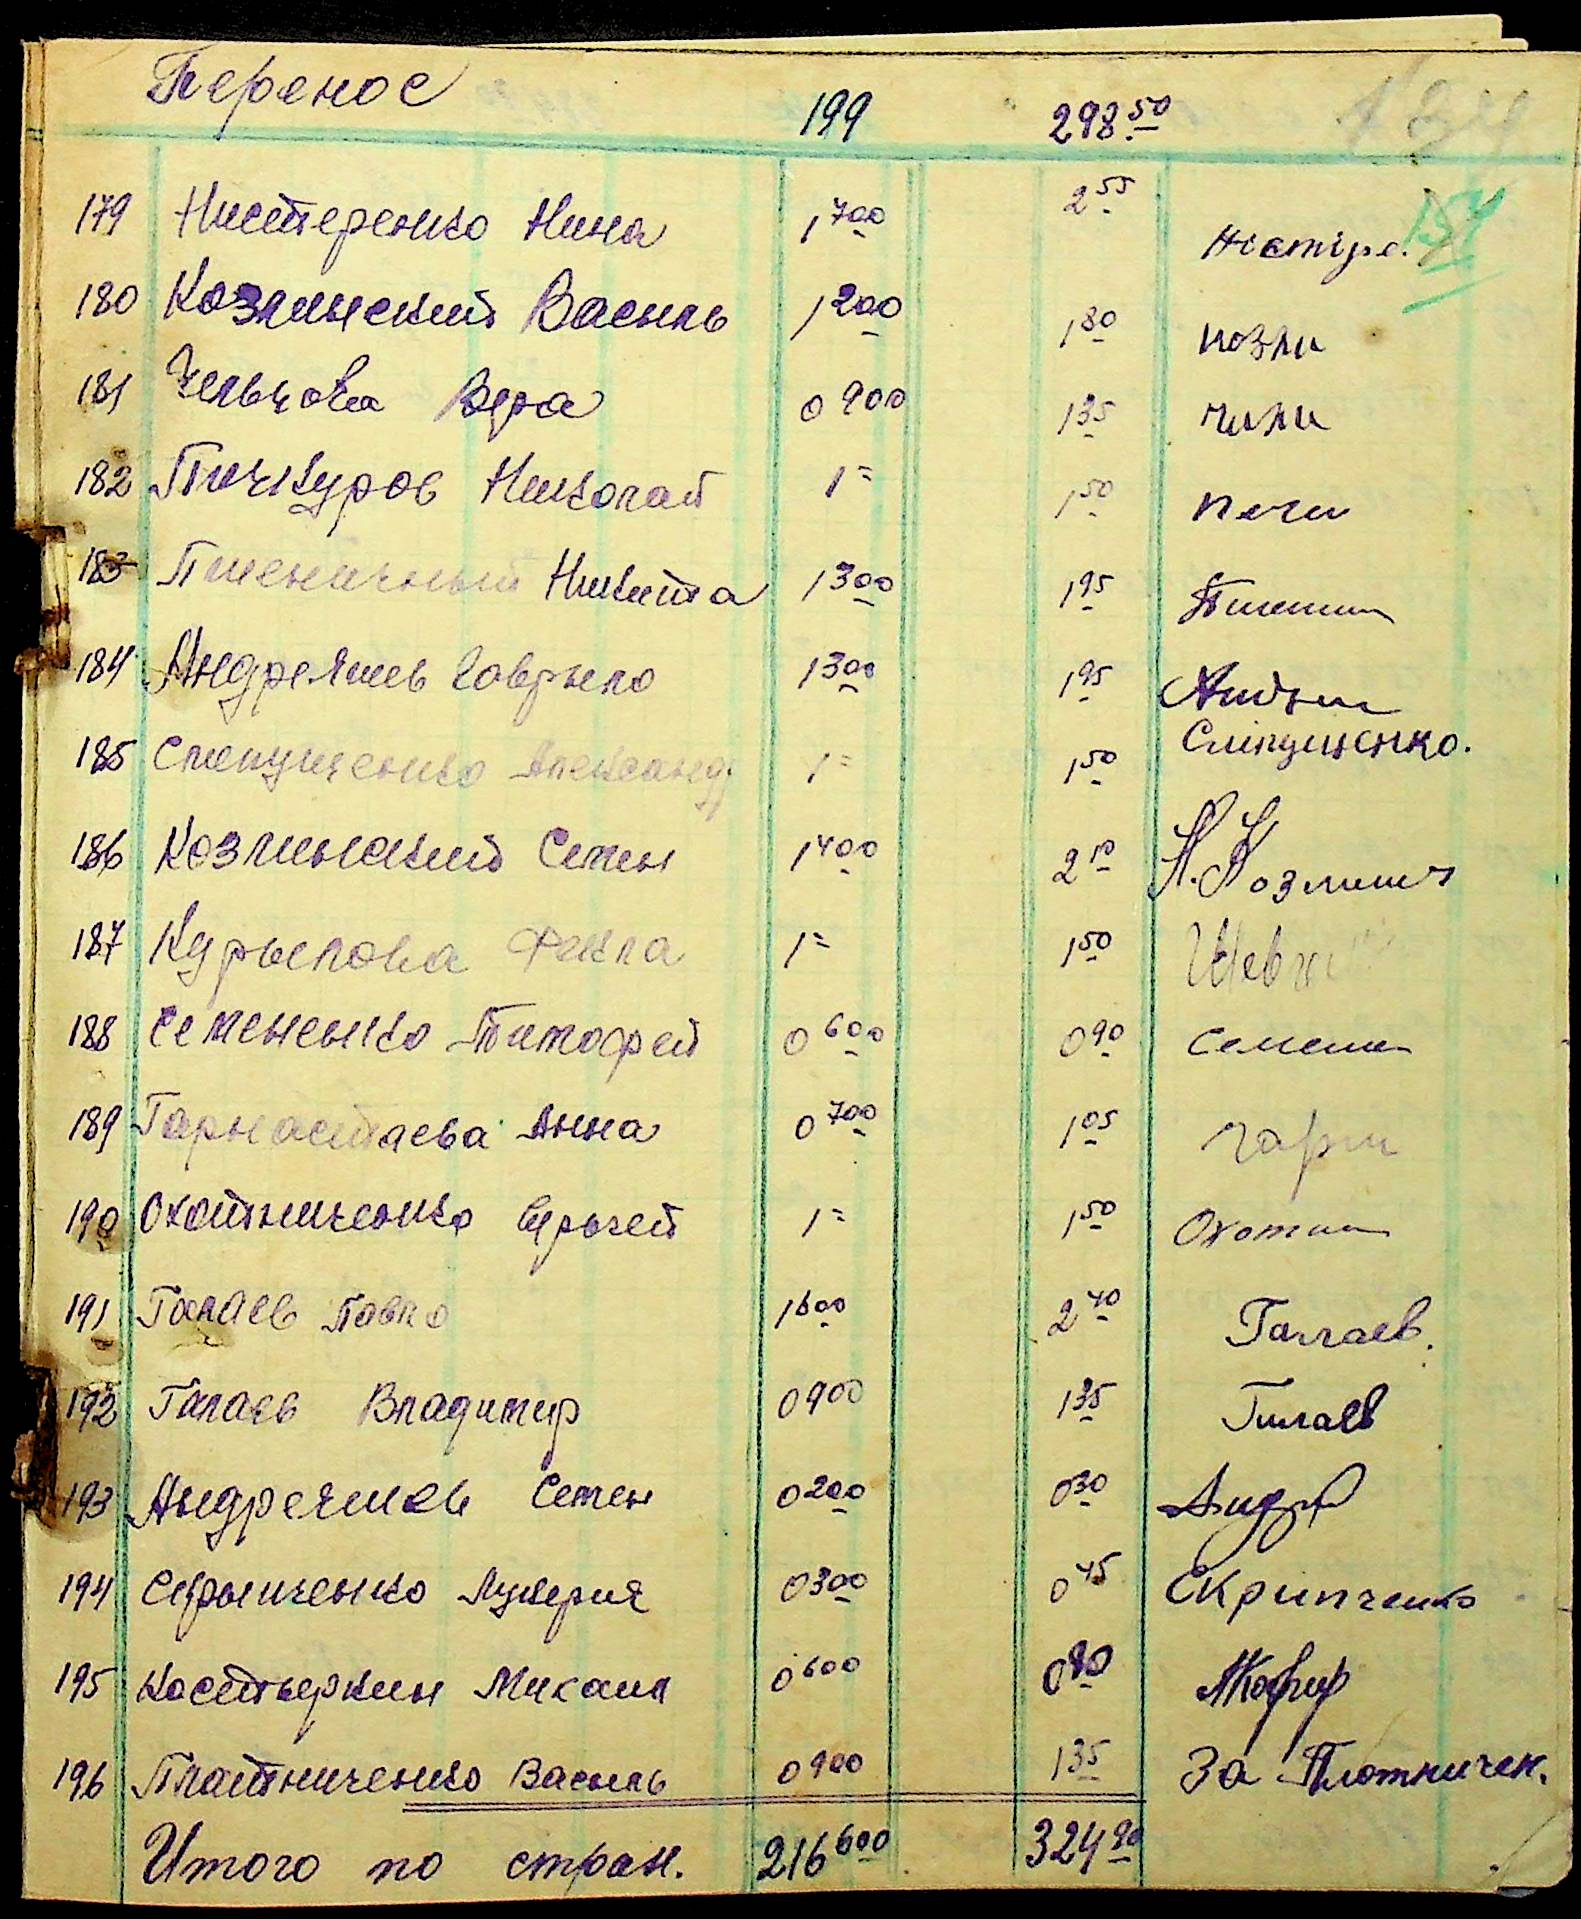 Перенос 199 298.50
179 Нистеренко Нина 1700 2 55 Нестире. 134
180 Козлинский Василь 1200 1 80 козли
181 Чельнова Вера 0900 1 35 чили
182 Пичкуров Николай 1= 1 50 печи
183 Пшеничный Никита 1300 1 95 Пшенич
184 Андреяшев Гаврыло 1300 1 95
185 Слепущенко Александ. 1= 1 50 Сліпущенко.
186 Козлинский Семен 1400 2 10 К. Козлинс
187 Курылова Фекла 1= 1 50 Шевч
188 Семененко Тимофей 0600 0 90 Семенен
189 Гарнастаева Анна 0700 1 05 гарн
190 Охотниченко Сергей 1= 1 50 Охотни
191 Галаев Павло 1600 2 40 Галаев.
192 Галаев Владимир 0900 1 35 Галаев
193 Андреяшев Семен 0200 0 30 Андр
194 Скрыпченко Лукерия 0300 0 45 Скрипченко
195 Костыркин Михаил 0600 0 90
196 Платниченко Василь 0900 1 35 За Плотничен.
Итого по стран. 216600 324 90